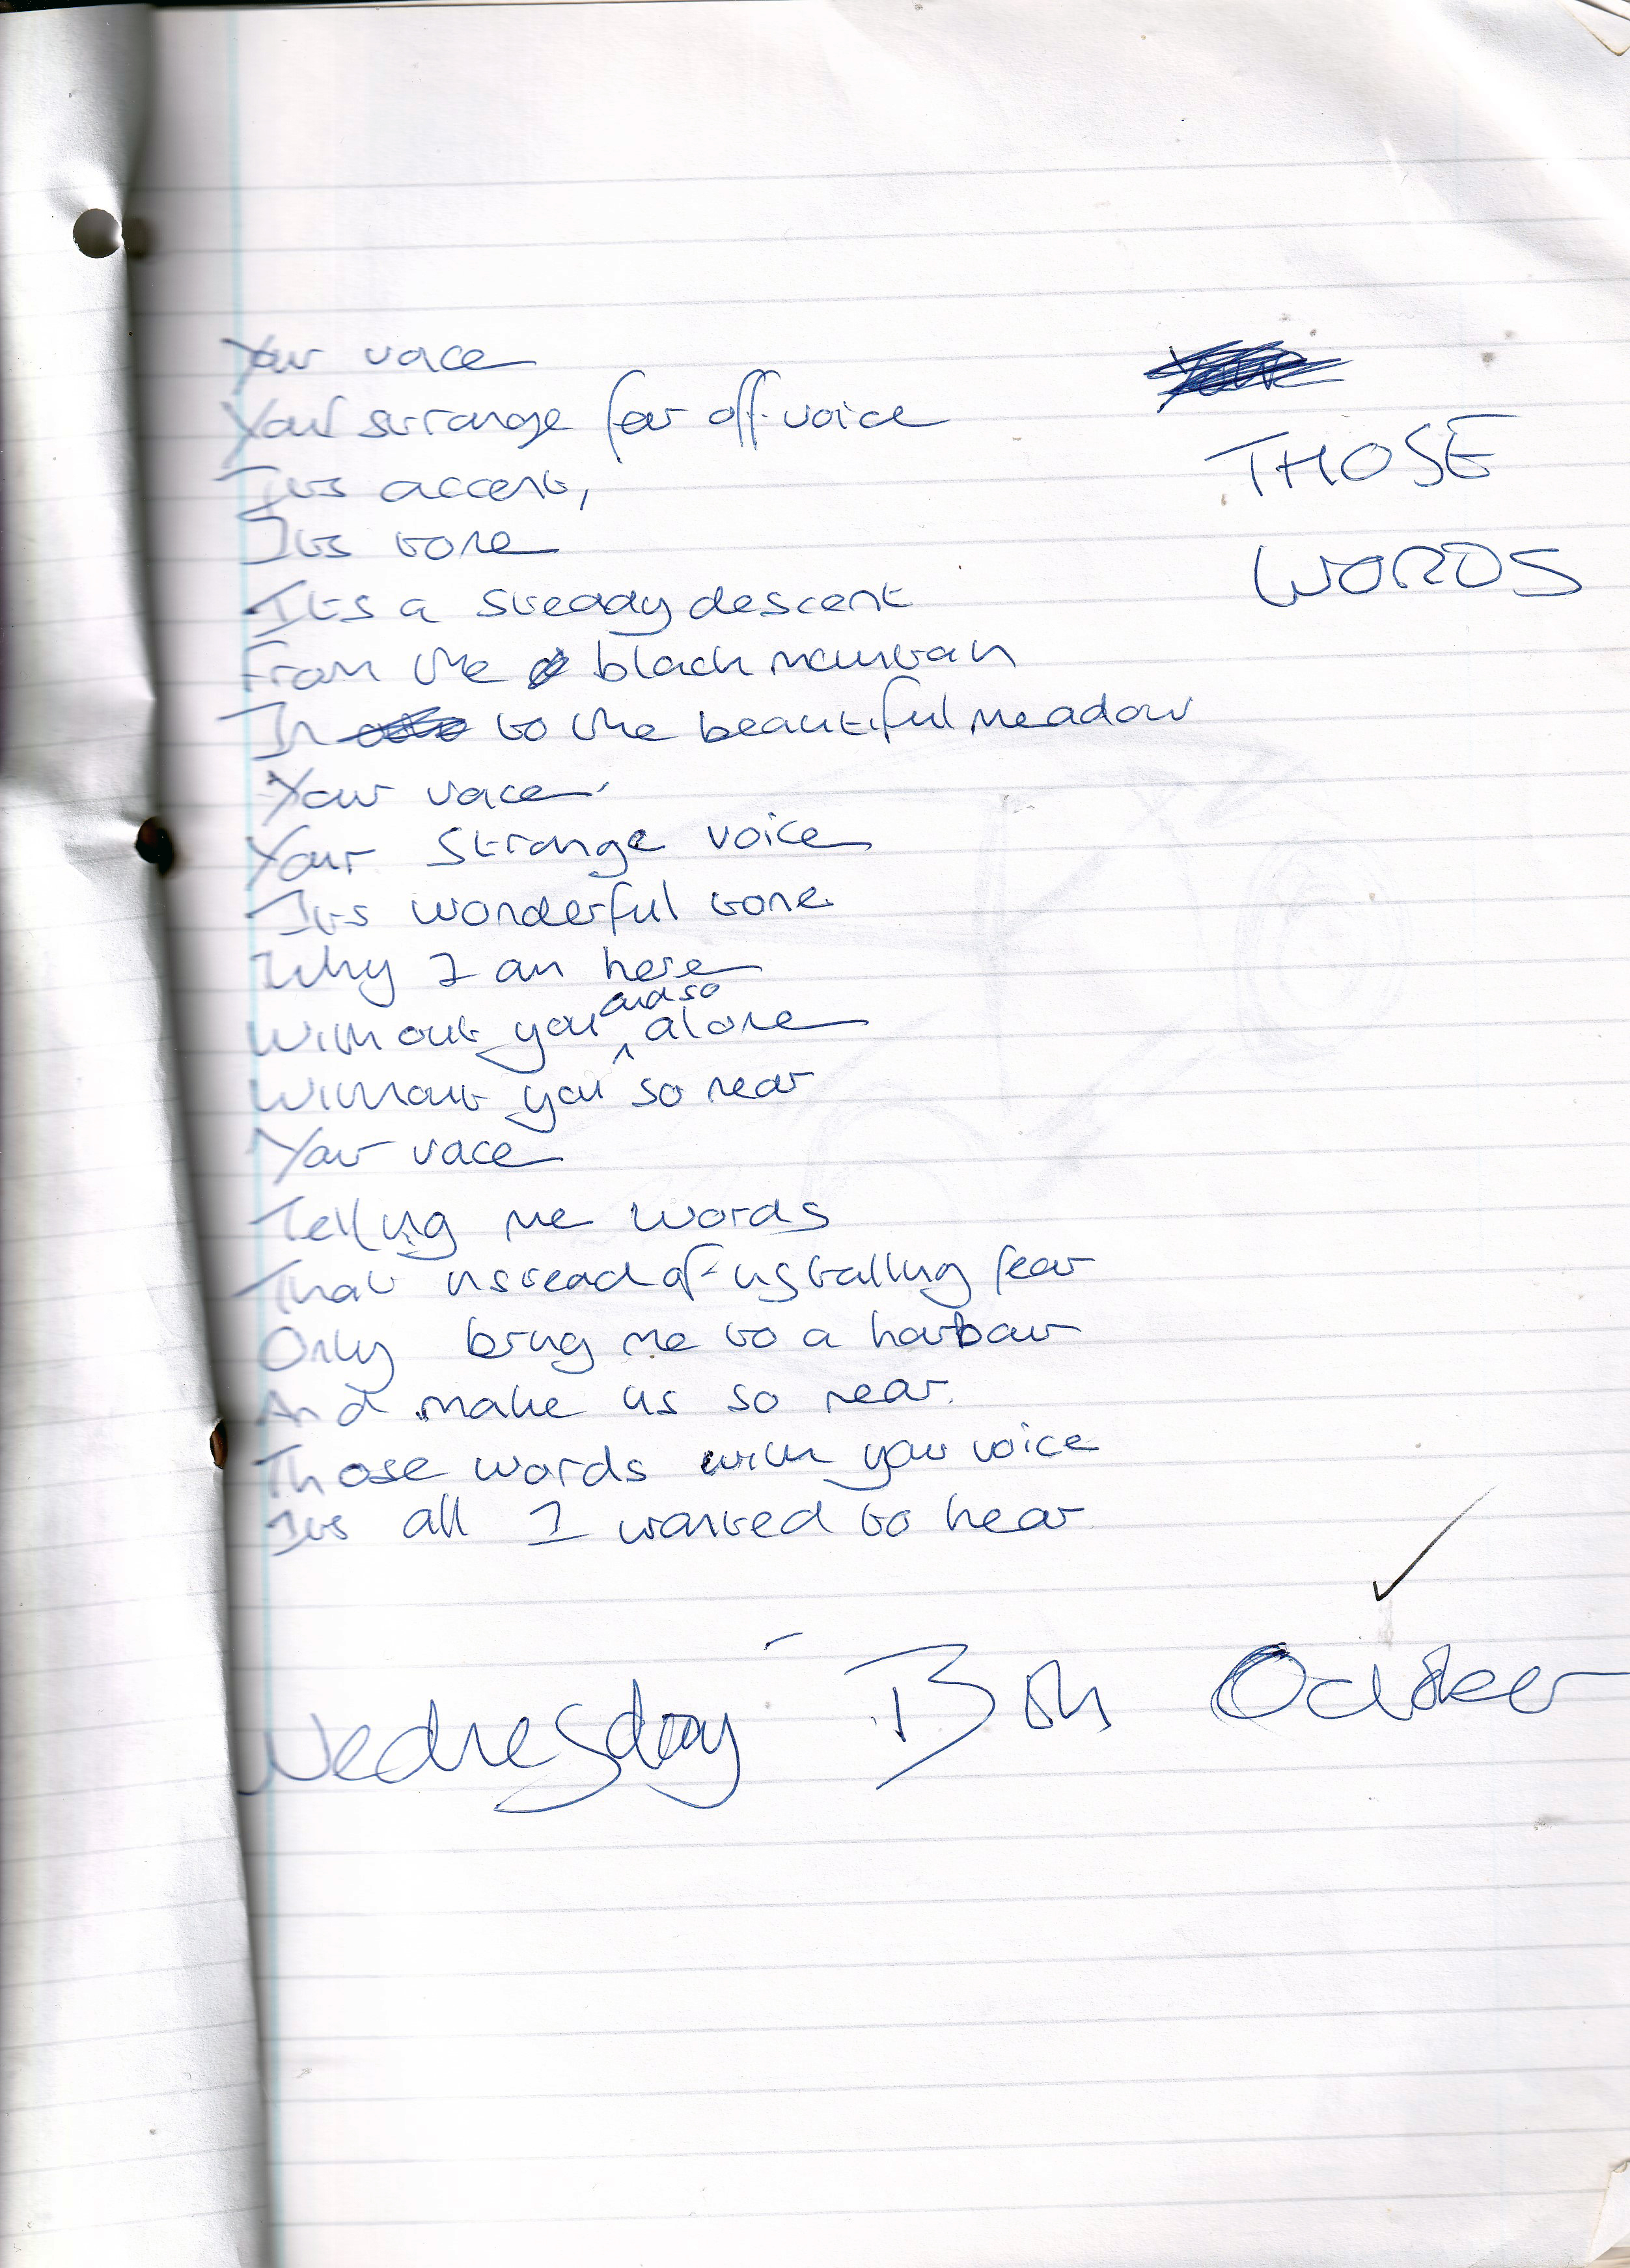 THOSE
WORDS
Your voice
Your strange far off voice
Its accent,
Its tone
Its a steady descent
From the black mountain
In to the beautiful meadow
Your voice
Your strange voice
Its wonderful tone
Why I am here
Without you and so alone
Without you so near
Your voice
Telling me words
That instead of installing fear
Only bring me to a harbour
And make us so near.
Those words with your voice
Its all I wanted to hear
Wednesday 13th October